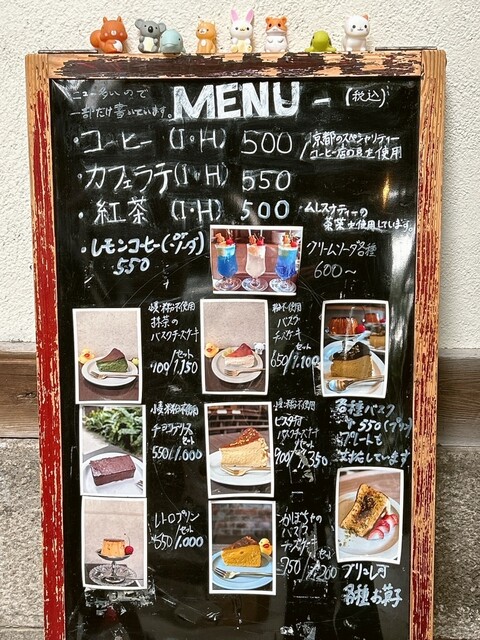 メニュー多いので
一部だけ書いています。
MENU - (税込)
・コーヒー(I・H) 500
京都のスペシャリティー
コーヒー店の豆を使用
・カフェラテ(I・H) 550
・紅茶(I・H) 500
・ムレスナティーの
茶葉を使用しています。
・レモンコーヒー(orソーダ)
550
クリームソーダ各種
600～
抹茶の
バスクチーズケーキ
セット
700/1,150
バスク
チーズケーキ
セット
650/1,100
チョコテリーヌ
セット
550/1,000
ピスタチオ
バスクチーズケーキ
セット
900/1,350
各種バスク
レトロプリン
セット
550/1,000
かぼちゃの
バスク
チーズケーキ
セット
750/1,200
ブリュレor
各種お菓子